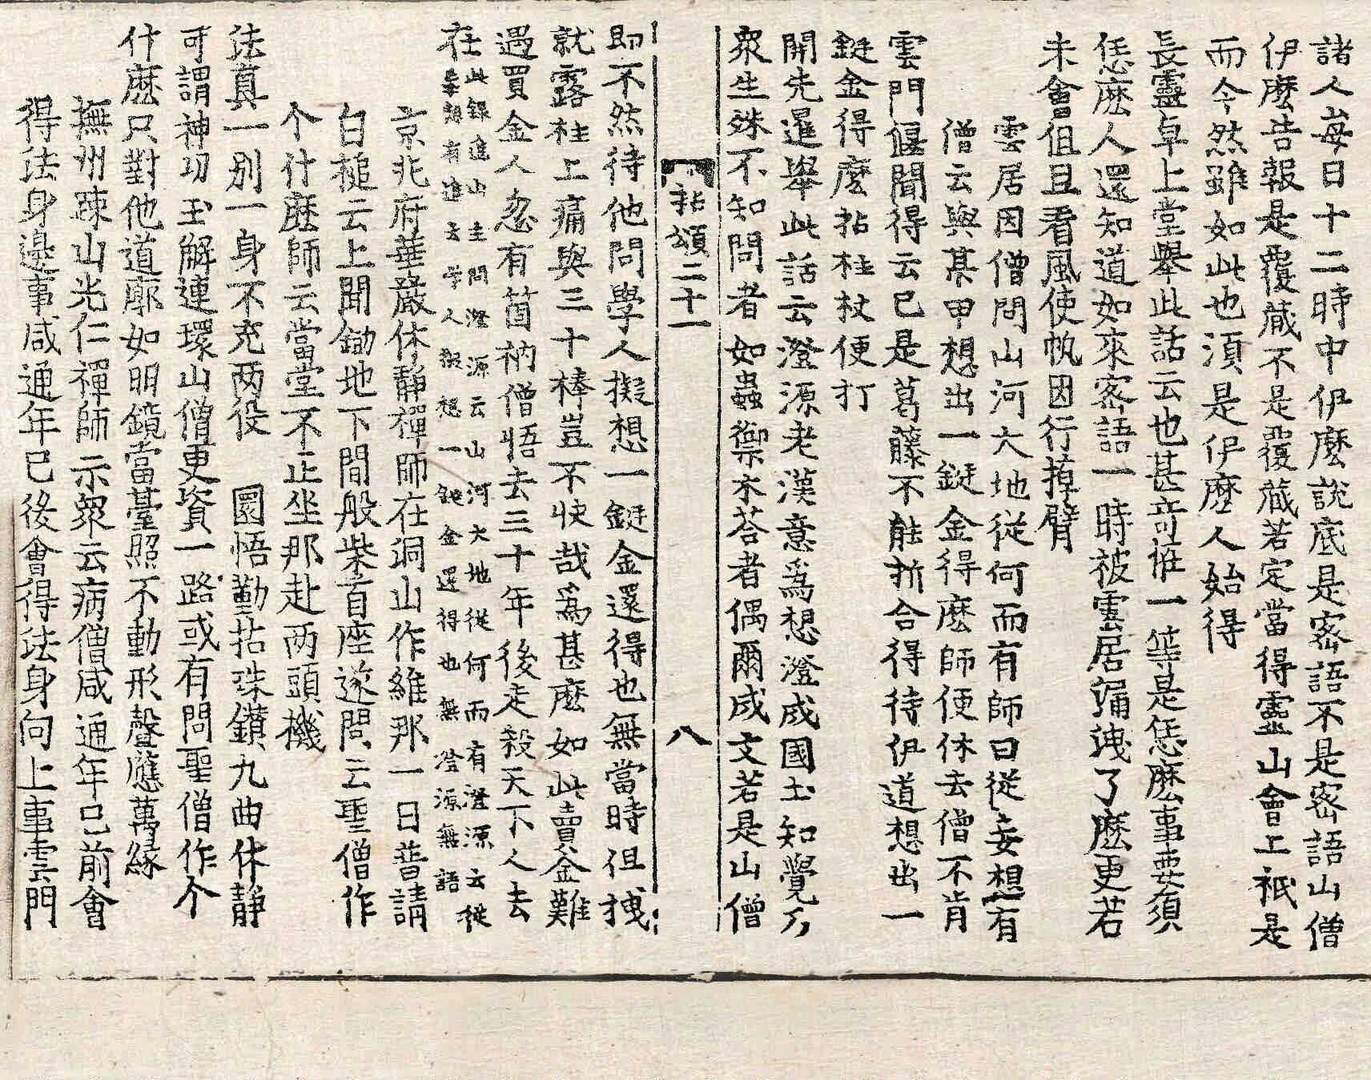 諸人每日十二時中伊麽說底是密語不是密語山僧
伊麽告報是覆蔵不是覆蔵若定當得靈山會上祇是
而今然雖如此也湏是伊麽人始得
長靈卓上堂舉此話云也甚竒恠一等是恁麽事要須
恁麽人還知道如來密語一時被雲居漏洩了麽更若
未會但且看風使帆因行掉臂
雲居因僧問山河大地從何而有師曰從妄想有
僧云與某甲想出一鋌金得麽師便休去僧不肯
雲門偃聞得云已是葛藤不能折合得待伊道想出一
鋌金得麽拈柱杖便打
開先暹舉此話云澄源老漢意爲想澄成國土知覺乃
衆生殊不知問者如蟲禦木荅者偶爾成文若是山僧
拈頌二十一 八
即不然待他問學人擬想一鋌金還得也無當時但拽
就露柱上痛與三十棒豈不快哉爲甚麽如此賣金難
遇買金人忽有箇衲僧悟去三十年後走殺天下人去
在此録進山主問澄源云山河大地從何而有澄源云從
妄想有進云学人擬想一鋌金還得也無澄源無語
京兆府華嚴休静禪師在洞山作維那一日普請
白槌云上間鋤地下間般柴首座遂問云聖僧作
个什麽師云當堂不正坐那赴两頭機
法真一别一身不充两役 圜悟勤拈珠鑚九曲休静
可謂神功玉解連環山僧更資一路或有問聖僧作个
什麽只對他道廓如明鏡當臺照不動形聲應萬緣
撫州踈山光仁禪師示衆云病僧咸通年已前會
得法身邊事咸通年已後會得法身向上事雲門